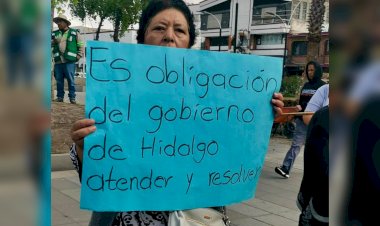 Es obligación
del gobierno
de Hidalgo
atender y resolver